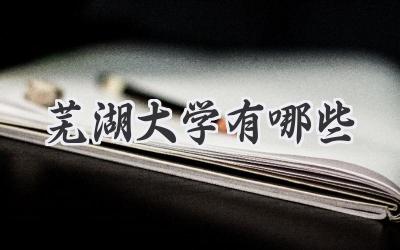 芜湖大学有哪些